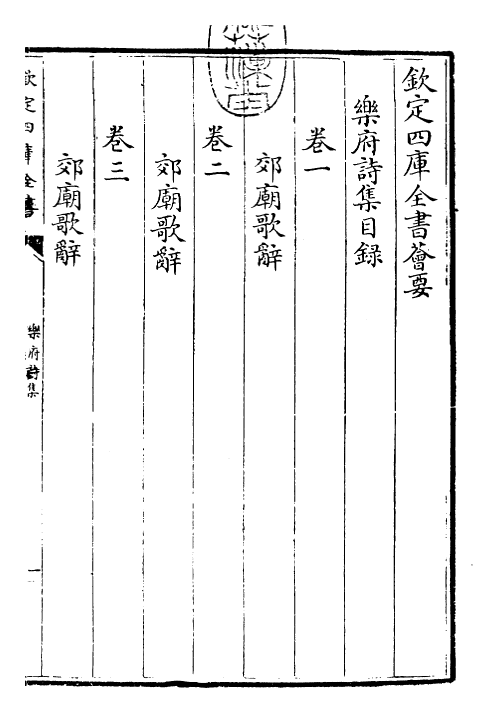 欽定四庫全書薈要
樂府詩集目録
卷一
郊廟歌辭
卷二
郊廟歌辭
卷三
郊廟歌辭
欽定四庫全書
樂府詩集
一